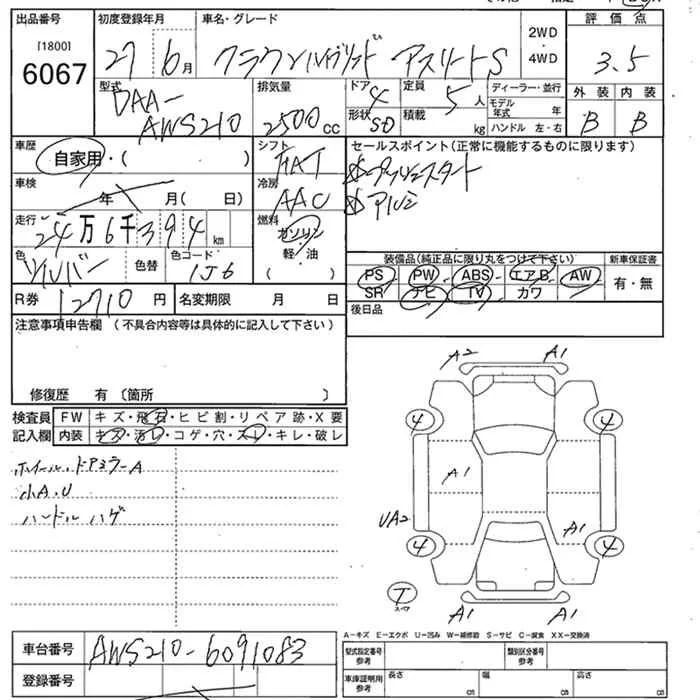 出品番号 初度登録年月 車名・グレード 2WD 評価点
[1800] 27 6月 クラウンハイブリッド アスリートS 4WD 3.5
6067
型式 排気量 ドア 4 定員 5人 ディーラー・並行 外装 内装
DAA- 2500cc 形状 SD 積載 kg モデル年式 年 B B
AWS210 ハンドル 左・右
車歴 シフト セールスポイント(正常に機能するものに限ります)
自家用・( ) FAT プッシュスタート
車検 年 月( 日) 冷房 アルミ
AAC
走行 24万6千394km 燃料
ガソリン
軽・油
( )
色 シルバー 色替 色コード 1J6
装備品(純正品に限り丸をつけて下さい) 新車保証書
PS PW ABS エアB AW 有・無
SR ナビ TV カワ
R券 12710円 名変期限 月 日 後日品
注意事項申告欄 (不具合内容等は具体的に記入して下さい)
修復歴 有 〔箇所 〕
検査員 FW キズ・飛石・ヒビ割・リペア跡・X要
記入欄 内装 キズ・汚レ・コゲ・穴・スレ・キレ・破レ
ホイール、ドアミラーA
小A.U
ハンドル ハゲ
A2 A1
4 4
A1
UA2 A1
4 4
T
スペア
A1 A1
A-キズ E-エクボ U-凹み W-補修跡 S-サビ C-腐食 XX-交換済
車台番号 AWS210-6091083
型式指定番号 参考 類別区分番号 参考
登録番号 車庫証明用 参考 長さ cm 幅 cm 高さ cm